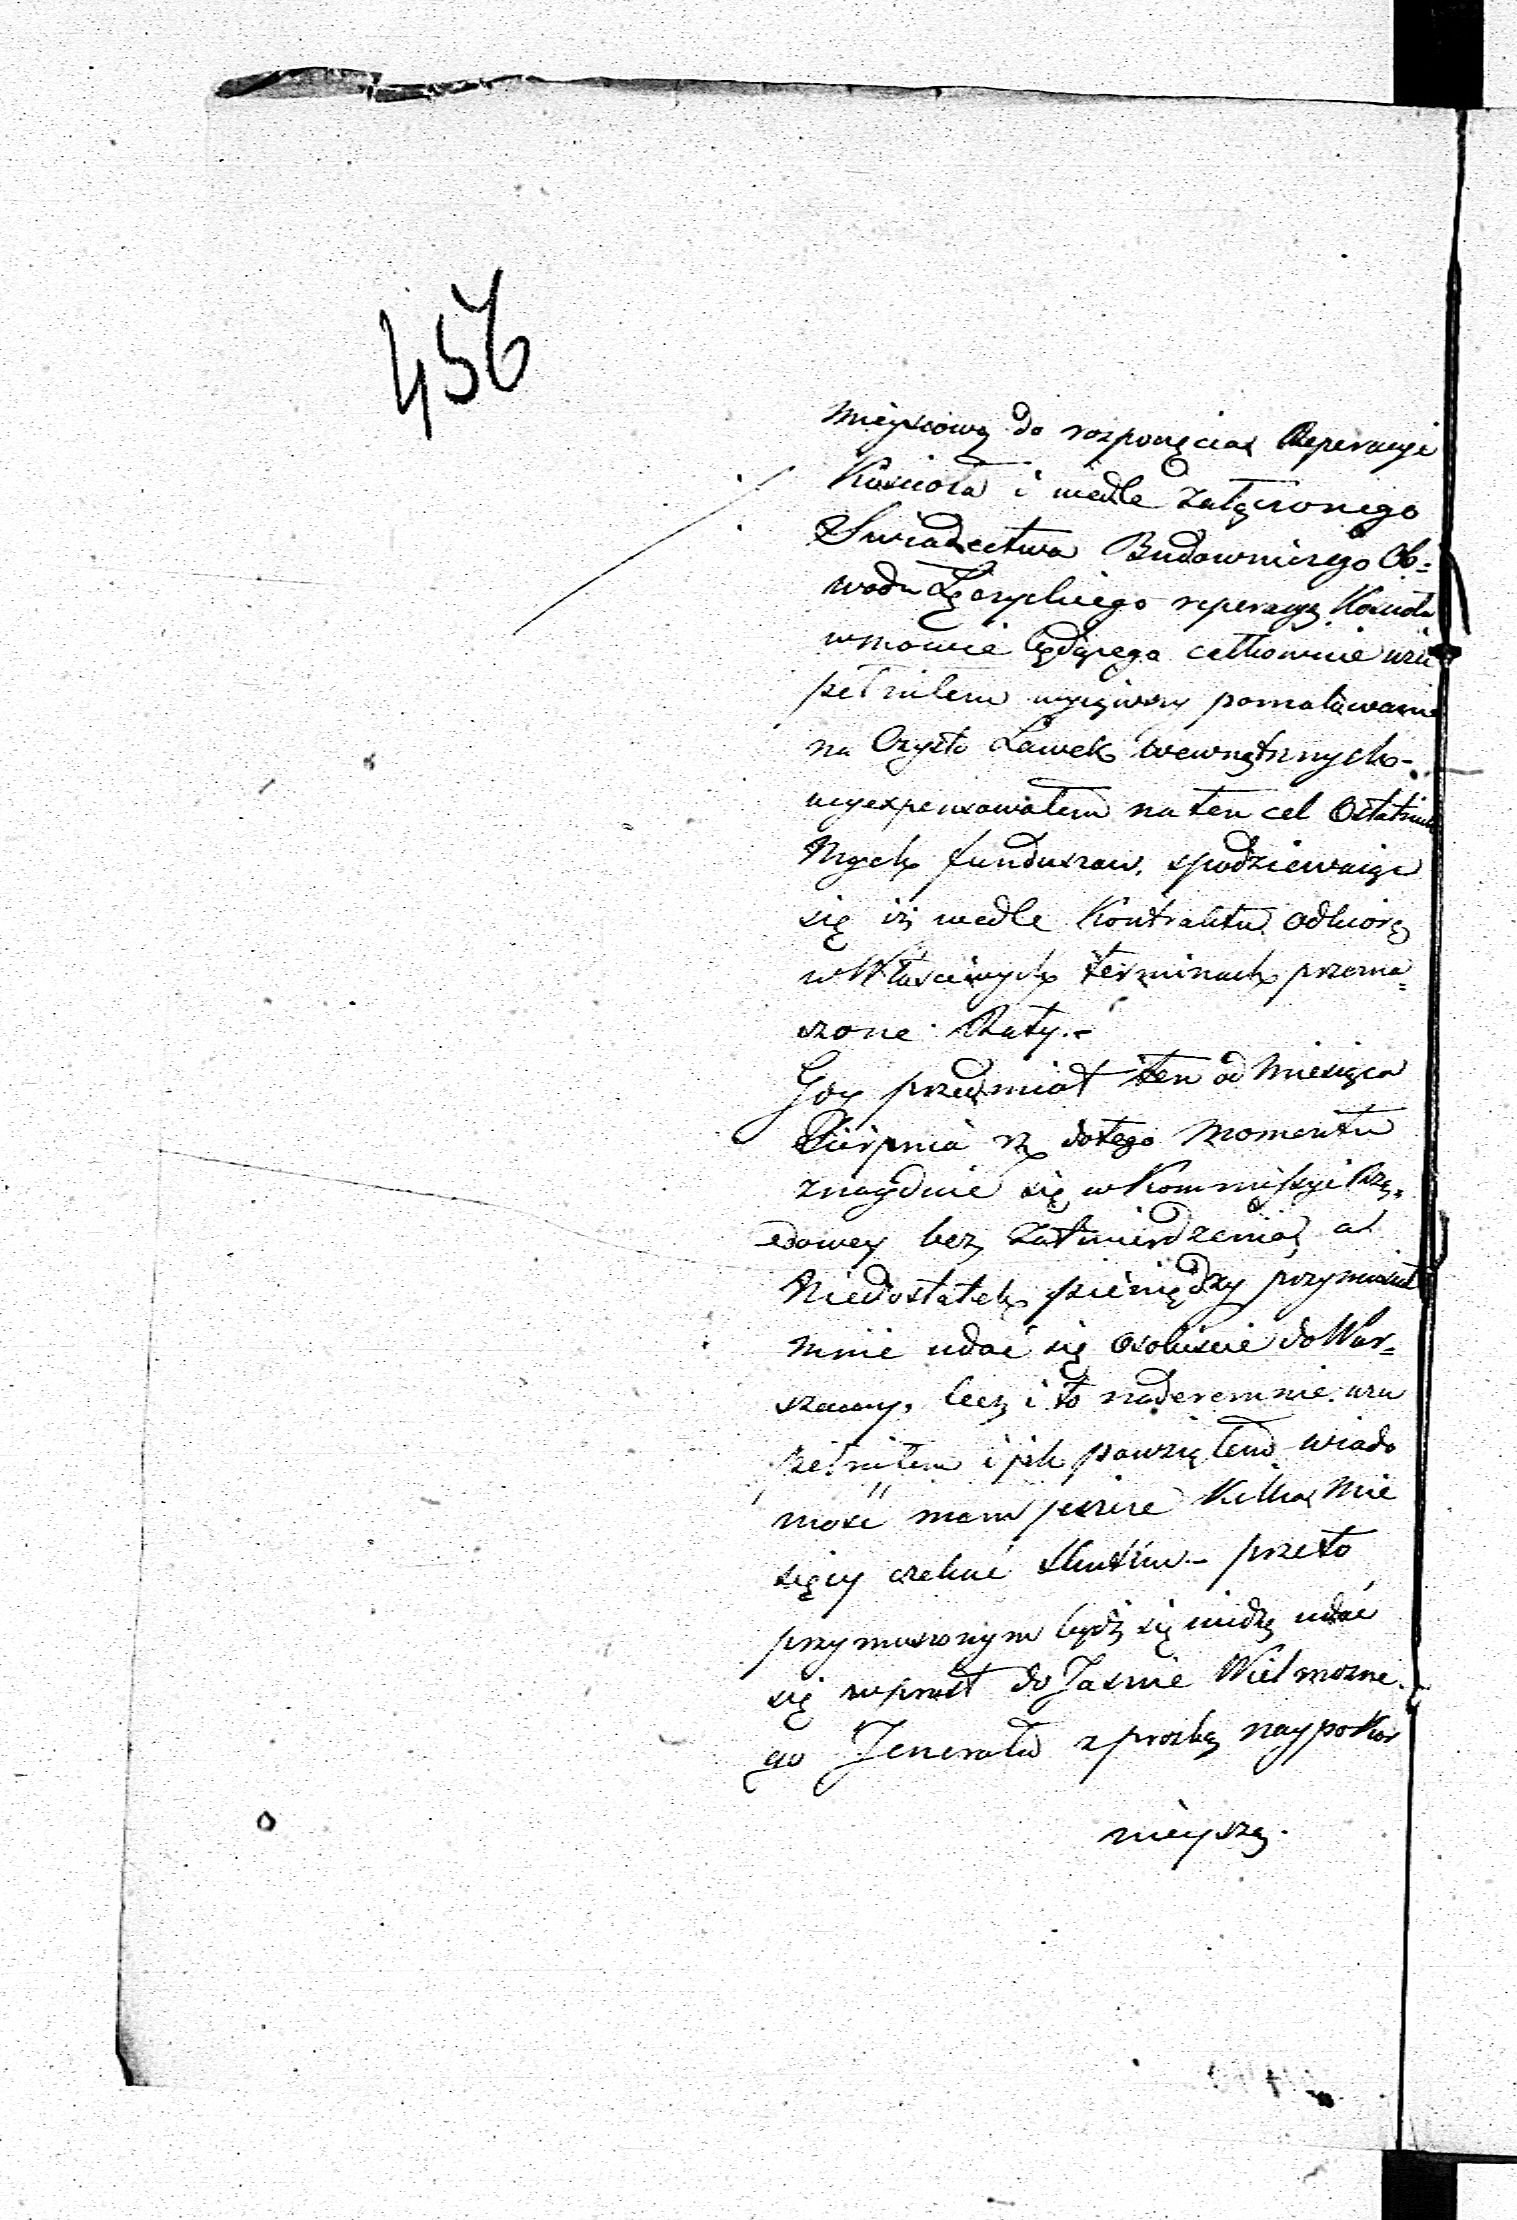 456
Mieyscową do rozpoczęcia Reperacyi
Kościoła i wedle załączonego
Swiadectwa Budowniczego Ob=
wodu Łęczyckiego reperacyą Kościoła
w mowie będącego całkowicie uzu
pełniłem wyjąwszy pomalowanie
na Czysto Ławek wewnętrznych -
wyexpensowałem na ten cel Ostatnich
Mych funduszow, spodziewaiąc
się iż wedle Kontraktu odbiorę
w Właściwych terminach przezna=
czone Raty.-
Gdy przedmiot ten od Miesiąca
Sierpnia rb dotego Momentu
znayduie się w Kommissyi Rzą=
dowey bez zatwierdzenia, a
Niedostatek pieniędzy przymusił
mnie udać się osobiscie do War=
szawy, lecz i to nadaremnie uzu
pełniłem i jak powziąłem wiado
mość mam jeszcze Kilka Mie
sięcy czekać skutku - przeto
przymuszonym bydź się widzę udać
się wprost do Jasnie Wielmozne
go Jenerała z prozbą naypokor
nieyszą.